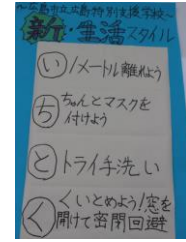 ～広島市立広島特別支援学校～
新・生活スタイル
い 1メートル離れよう
ち ちゃんとマスクを
付けよう
と トライ手洗い
く くいとめよう!窓を
開けて密閉回避